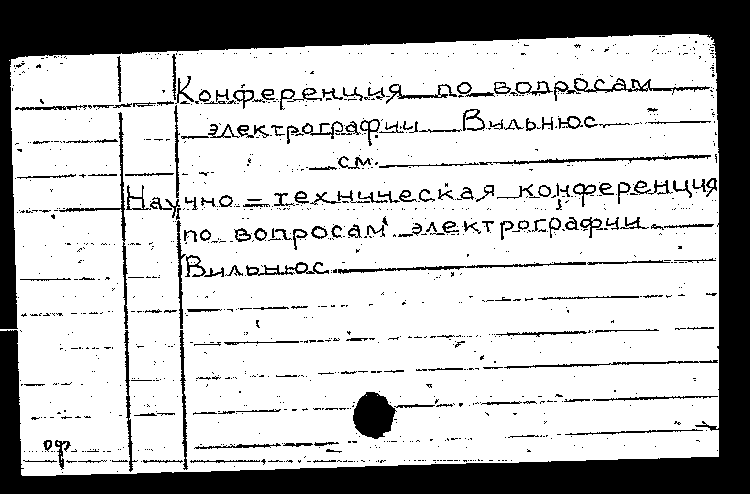 Конференция по вопросам
электрографии Вильнюс.
см.
Научно = техническая конференция
по вопросам электрографии.
Вильнюс